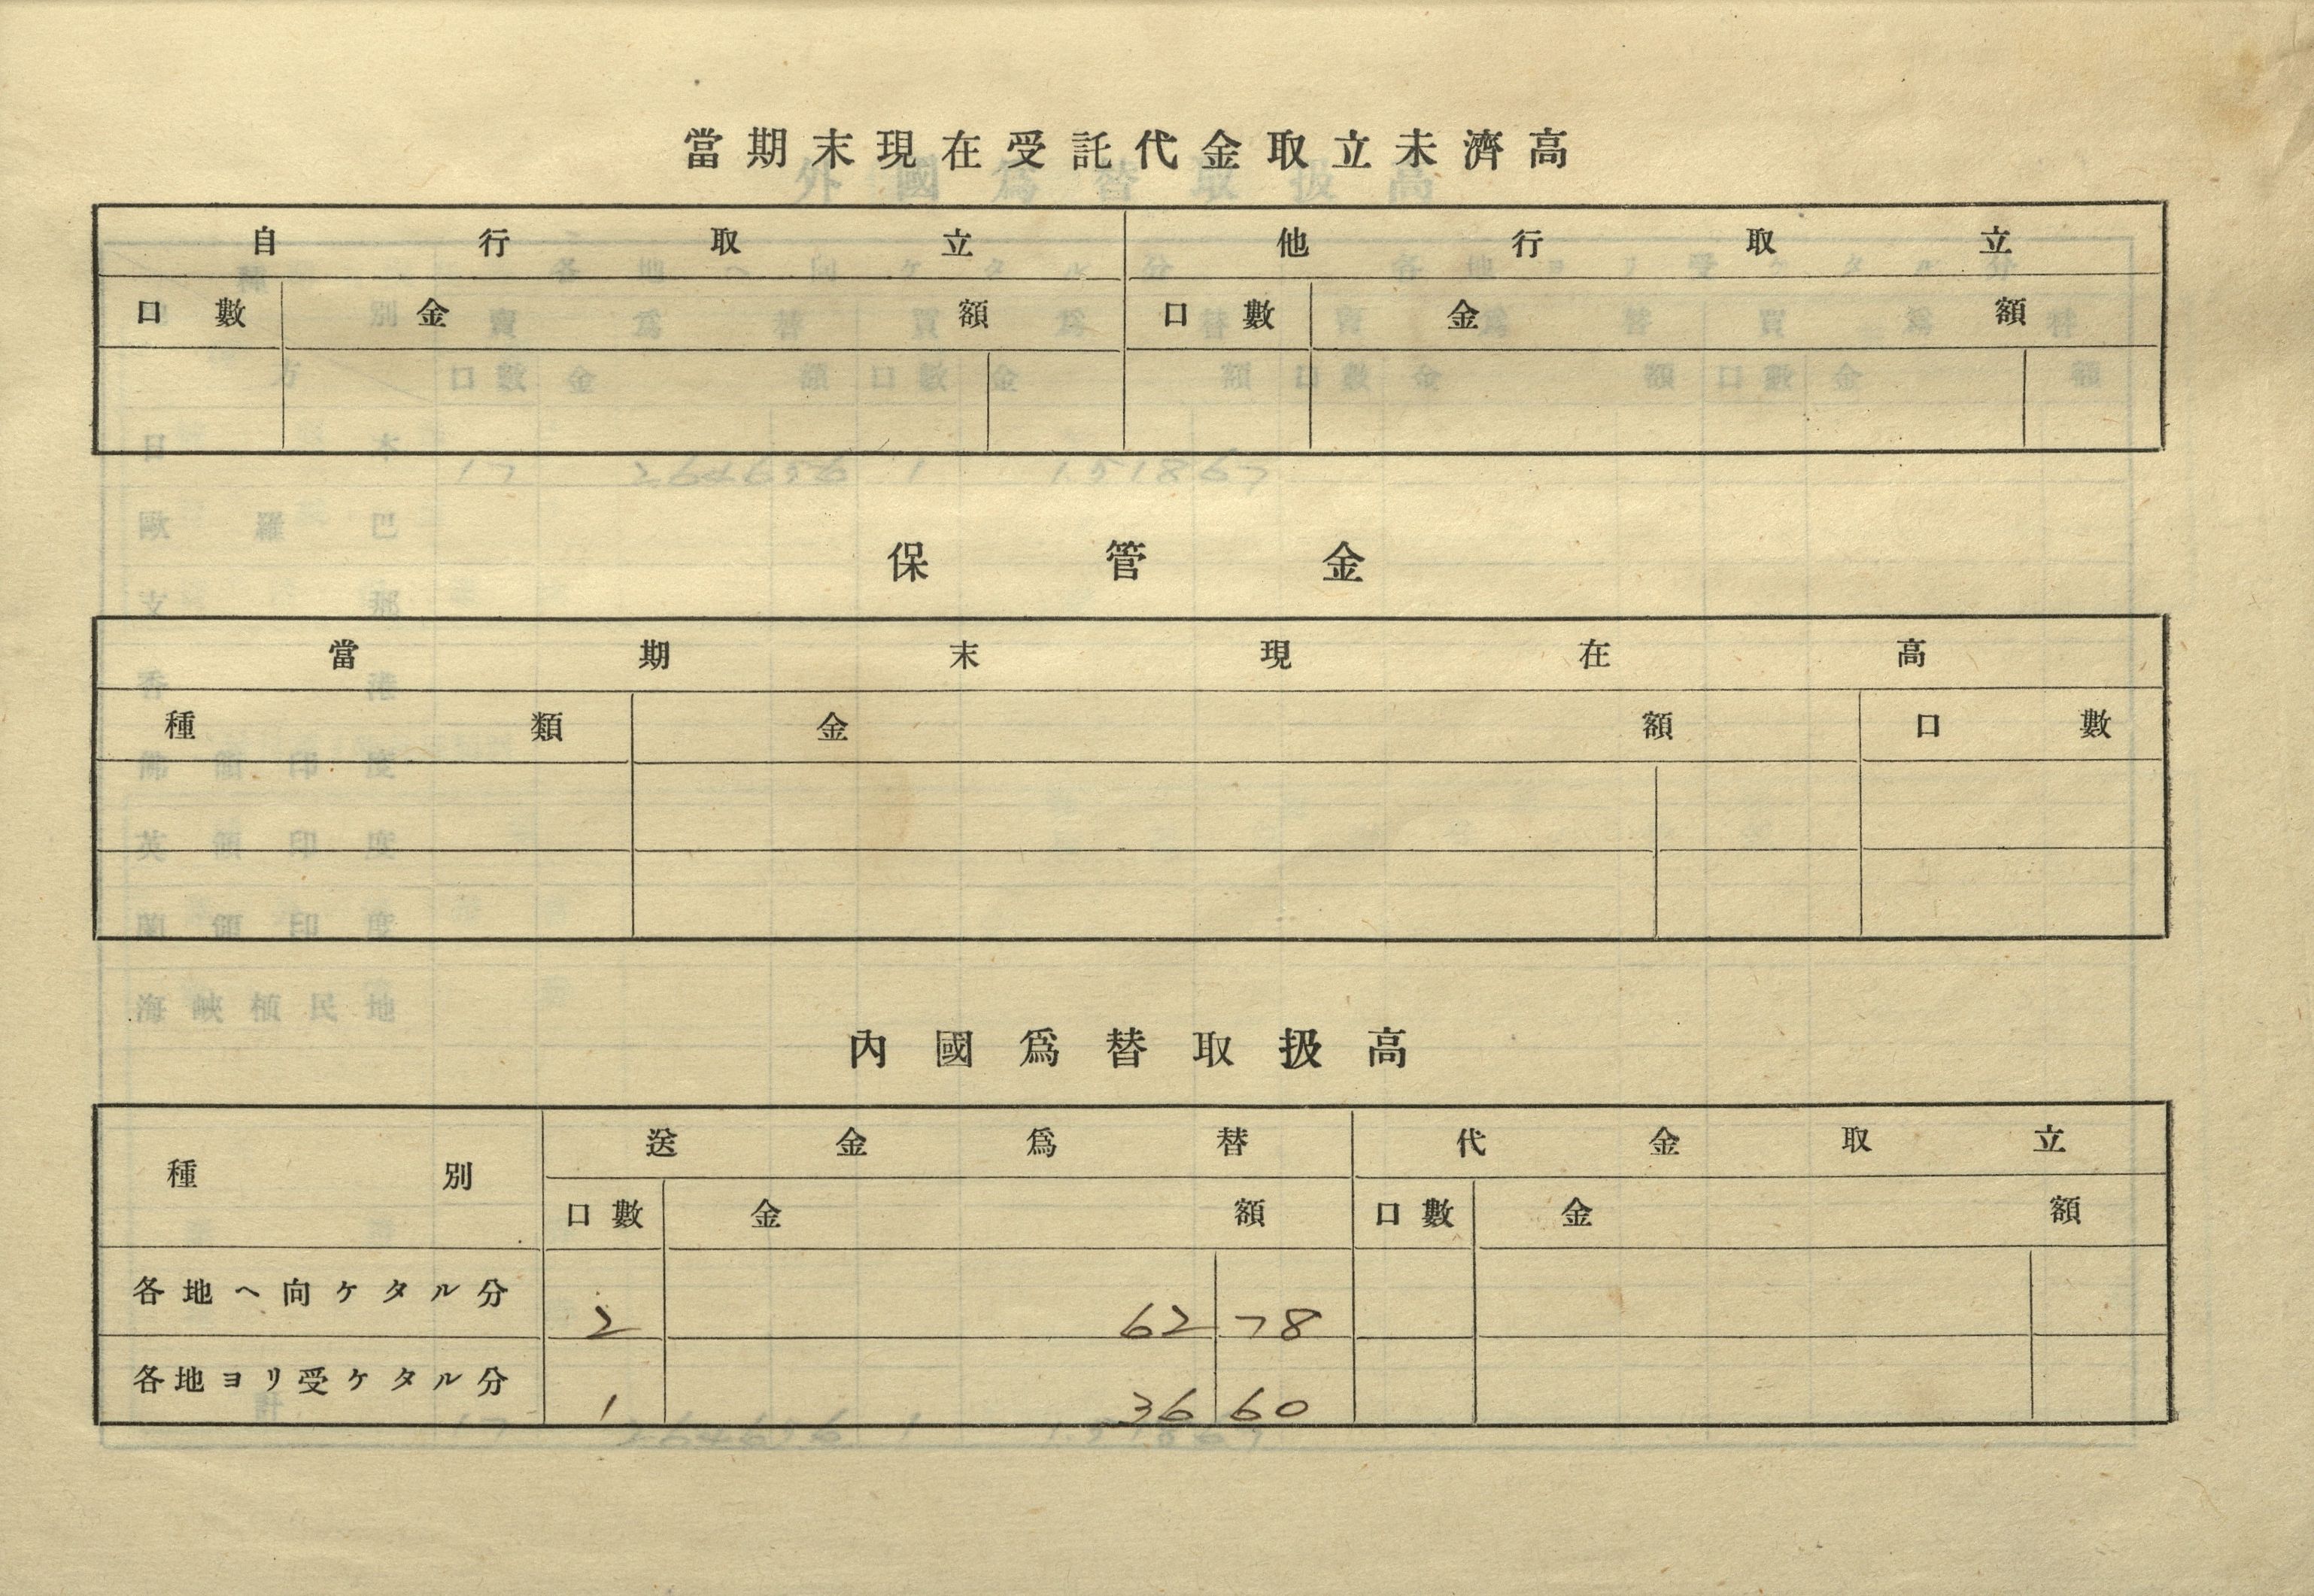 當期末現在受託代金取立未濟高
自行取立 他行取立
口數 金額 口數 金額
保管金
當期末現在高
種類 金額 口數
內國爲替取扱高
種別 送金爲替 代金取立
口數 金額 口數 金額
各地ヘ向ケタル分 2 62 78
各地ヨリ受ケタル分 1 36 60